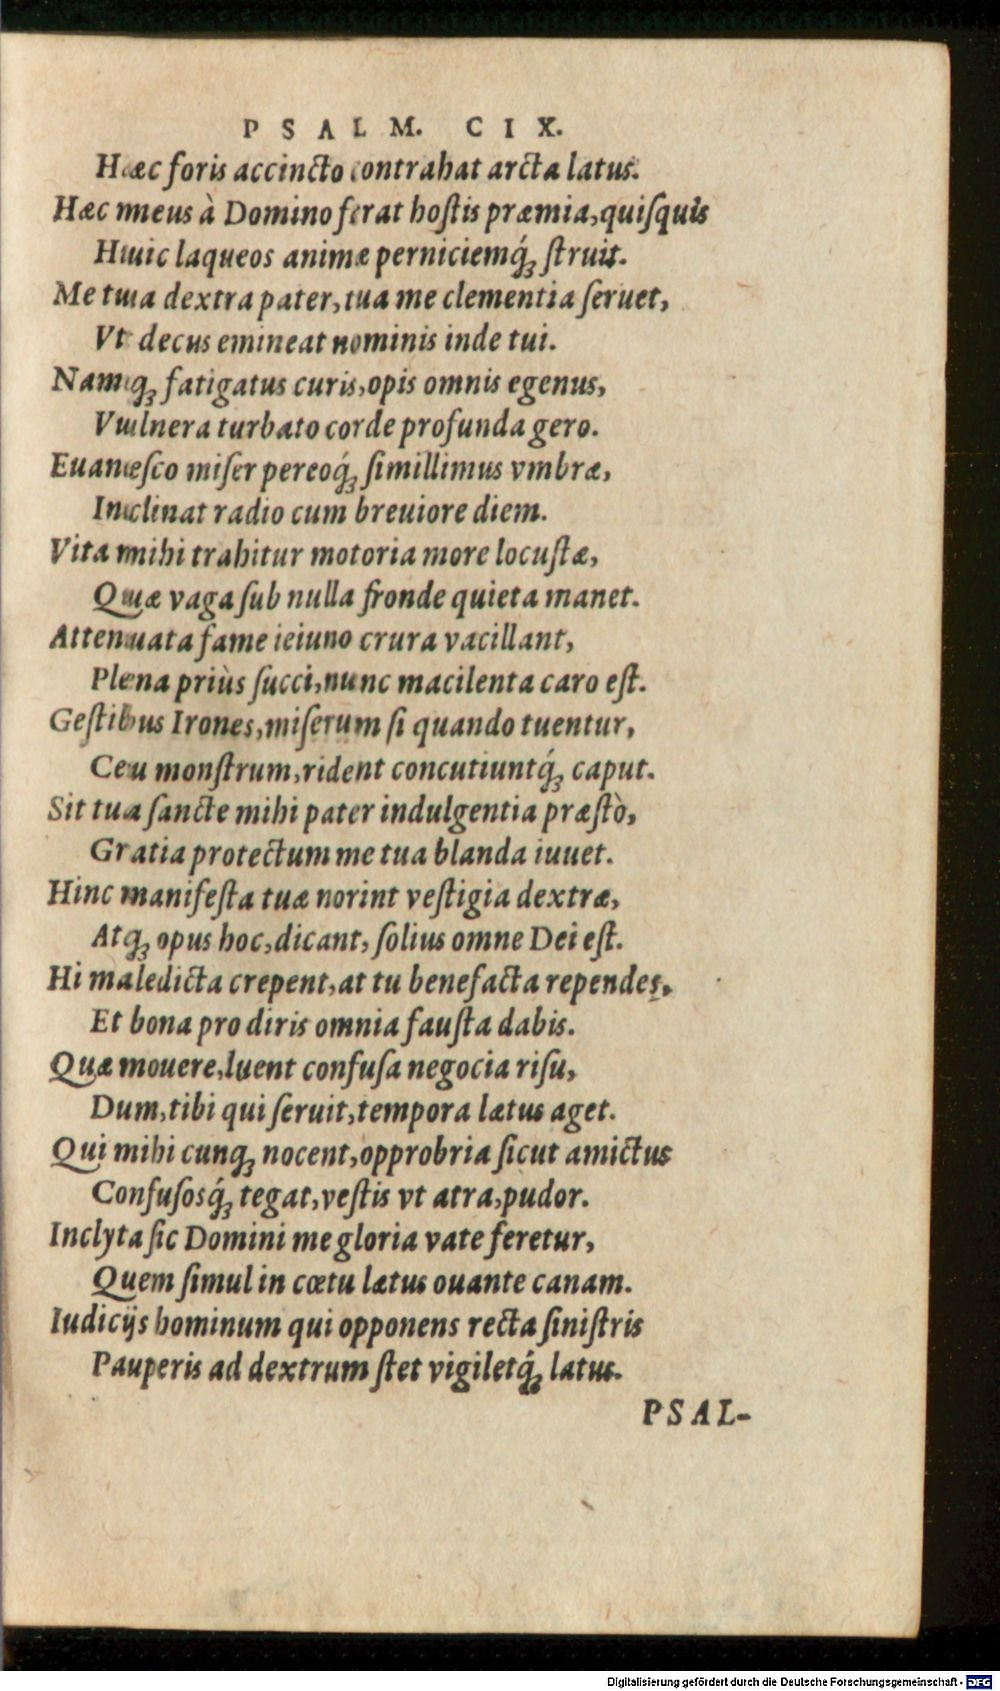 PSALM. CIX.
Hæc foris accincto contrahat arcta latus.
Hæc meus à Domino ferat hostis præmia, quisquis
Huic laqueos animæ perniciemq́; struit.
Me tua dextra pater, tua me clementia seruet,
Vt decus emineat nominis inde tui.
Namq; fatigatus curis, opis omnis egenus,
Vulnera turbato corde profunda gero.
Euanesco miser pereoq́; simillimus vmbræ,
Inclinat radio cum breuiore diem.
Vita mihi trahitur motoria more locustæ,
Quæ vaga sub nulla fronde quieta manet.
Attenuata fame ieiuno crura vacillant,
Plena priùs succi, nunc macilenta caro est.
Gestibus Irones, miserum si quando tuentur,
Ceu monstrum, rident concutiuntq́; caput.
Sit tua sancte mihi pater indulgentia præstò,
Gratia protectum me tua blanda iuuet.
Hinc manifesta tuæ norint vestigia dextræ,
Atq; opus hoc, dicant, solius omne Dei est.
Hi maledicta crepent, at tu benefacta rependes,
Et bona pro diris omnia fausta dabis.
Quæ mouere, luent confusa negocia risu,
Dum, tibi qui seruit, tempora lætus aget.
Qui mihi cunq; nocent, opprobria sicut amictus
Confusosq́; tegat, vestis vt atra, pudor.
Inclyta sic Domini me gloria vate feretur,
Quem simul in cœtu lætus ouante canam.
Iudicijs hominum qui opponens recta sinistris
Pauperis ad dextrum stet vigiletq́; latus.
PSAL-
Digitalisierung gefördert durch die Deutsche Forschungsgemeinschaft - DFG